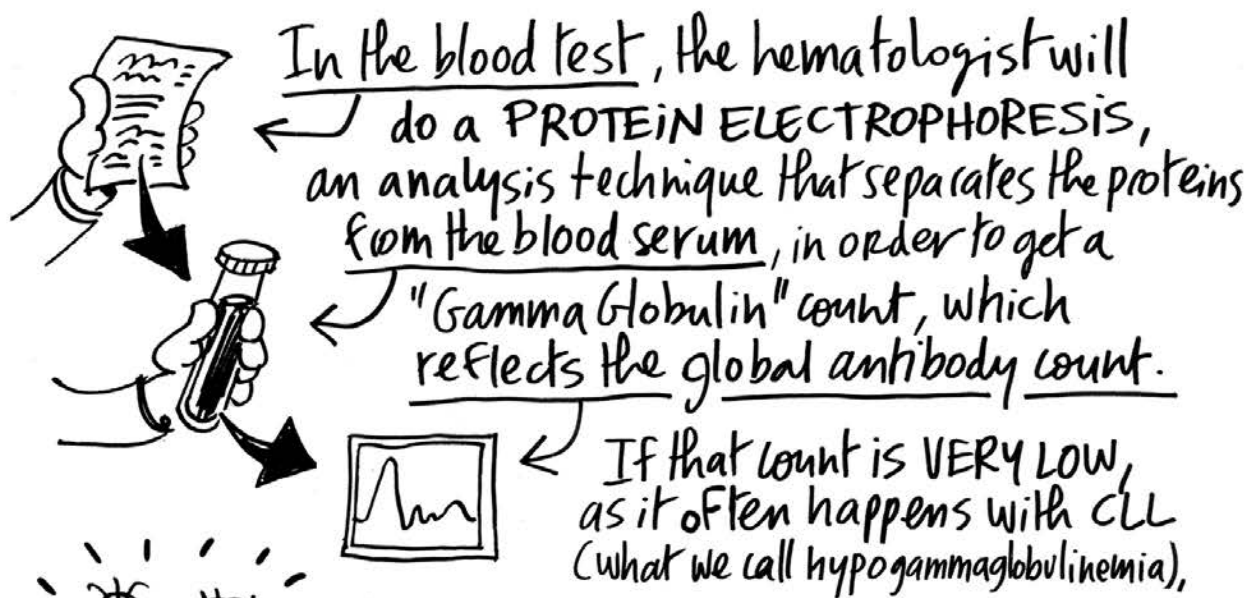 In the blood test, the hematologist will
do a PROTEIN ELECTROPHORESIS,
an analysis technique that separates the proteins
from the blood serum, in order to get a
"Gamma Globulin" count, which
reflects the global antibody count.
If that count is VERY LOW,
as it often happens with CLL
(what we call hypogammaglobulinemia),